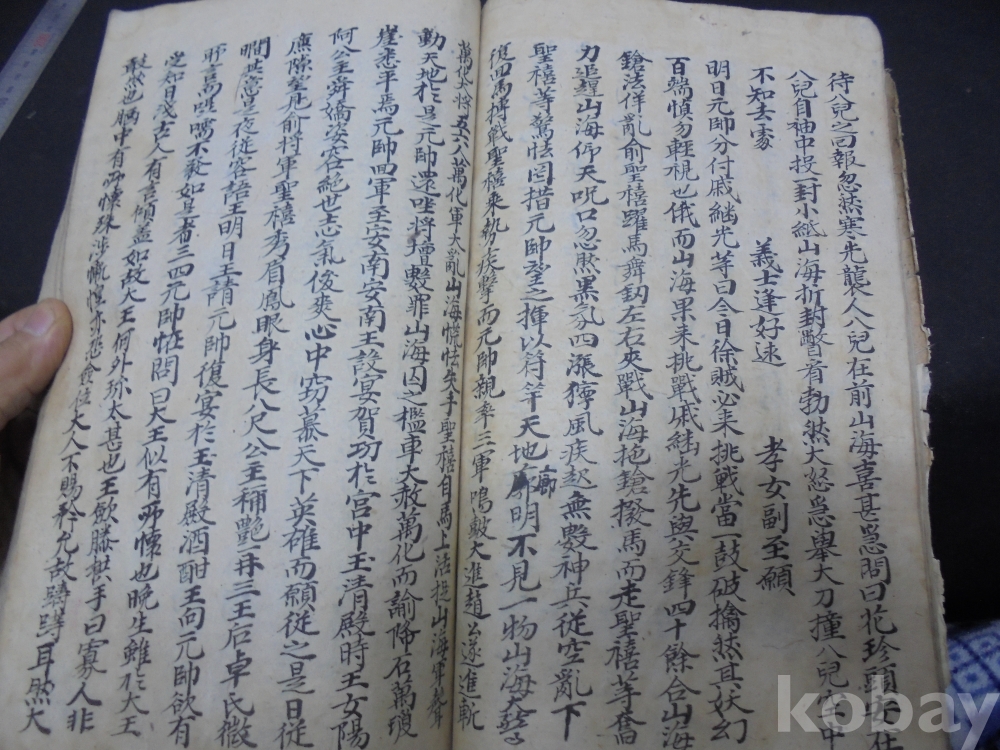 待兒之回報忽然寒光襲人八兒在前山海喜甚急問曰花珍頭安在
八兒自袖中投一封小紙山海折封瞥看勃然大怒急舉大刀撞八兒空中
不知去處　義士逢好逑　孝女副至願
明日元帥分付戚継光等曰今日徐賊必来挑戰當一鼓破擒然其妖幻
百端慎勿輕視也俄而山海果来挑戰戚継光先與交鋒四十餘合山海
鎗法佯亂俞聖禧躍馬舞釼左右夾戰山海拖鎗撥馬而走聖禧等奮
力追趕山海仰天呪口忽然黑氛四漲獰風疾起無數神兵従空亂下
聖禧等驚怯罔措元帥望之揮以符竿天地廓明不見一物山海大驚
復回馬搏戰聖禧乘勢疾擊而元帥親率三軍鳴皷大進趙公遂進斬
萬化大將五六人萬化軍大亂山海慌怯失手聖禧自馬上活捉山海軍聲
動天地於是元帥還坐將壇數罪山海囚之檻車大赦萬化而諭降石萬瓊
崖悉平焉元帥回軍至安南安南王設宴賀功於宮中玉清殿時王女陽
阿公主舜嬌姿容絶世志氣俊爽心中窃慕天下英雄而願従之是日従
廉隙窒見俞将軍聖禧秀眉鳳眼身長八尺公主称艶再三王后卓氏微
瞯其意是夜従容語王明日王請元帥復宴於玉清殿酒酣王向元帥欲有
所言而呐囁不發如是者三四元帥怪問曰大王似有所懷也晚生雖於大王
定知日淺古人有言傾盖如故大王何外弥太甚也王歛膝拱手曰寡人非
敢然也胸中有所懷殊涉慚惶亦恐僉位大人不賜矜允故躊躇耳然大
kobay